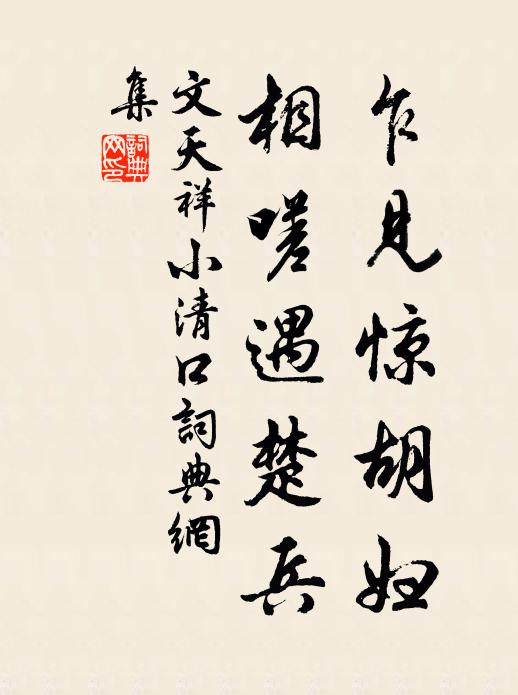 乍见惊胡妇
相嗟遇楚兵
文天祥小清口詞典網
集
詞典
网印